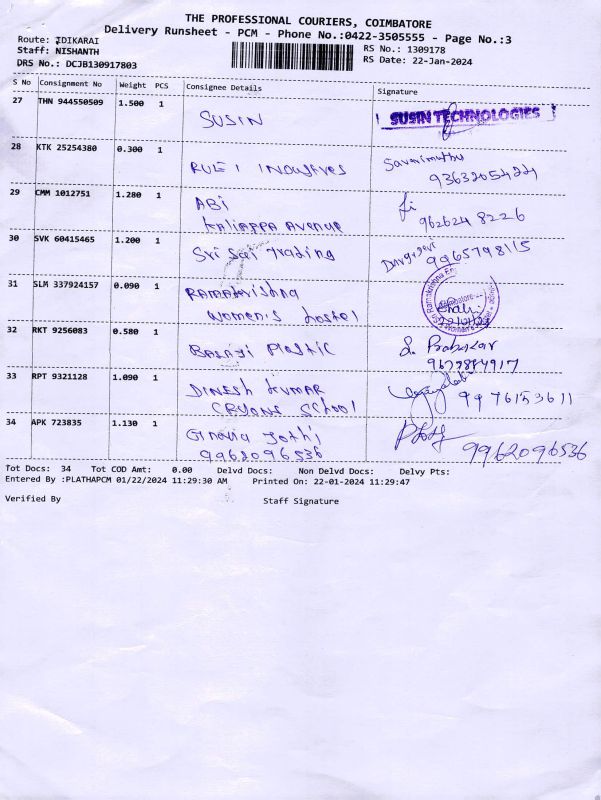 THE PROFESSIONAL COURIERS, COIMBATORE
Delivery Runsheet - PCM - Phone No.:0422-3505555 - Page No.:3
Route: IDIKARAI
RS No.: 1309178
Staff: NISHANTH
RS Date: 22-Jan-2024
DRS No.: DCJB130917803
S No Consignment No Weight PCS Consignee Details Signature
27 THN 944550509 1.500 1 SUSIN SUSIN TECHNOLOGIES
28 KTK 25254380 0.300 1
29 CMM 1012751 1.280 1 ABi
Kaliappa Avenue 9626248226
30 SVK 60415465 1.200 1 Sri Sai Trading 9965798115
31 SLM 337924157 0.090 1 Ramakrishna
women's hostel
32 RKT 9256083 0.580 1 Balaji Plastic S. Prabakar
33 RPT 9321128 1.090 1 DINESH KUMAR 9976153611
School
34 APK 723835 1.130 1 Jothi
9962096536 9962096536
Tot Docs: 34 Tot COD Amt: 0.00 Delvd Docs: Non Delvd Docs: Delvy Pts:
Entered By :PLATHAPCM 01/22/2024 11:29:30 AM Printed On: 22-01-2024 11:29:47
Verified By Staff Signature